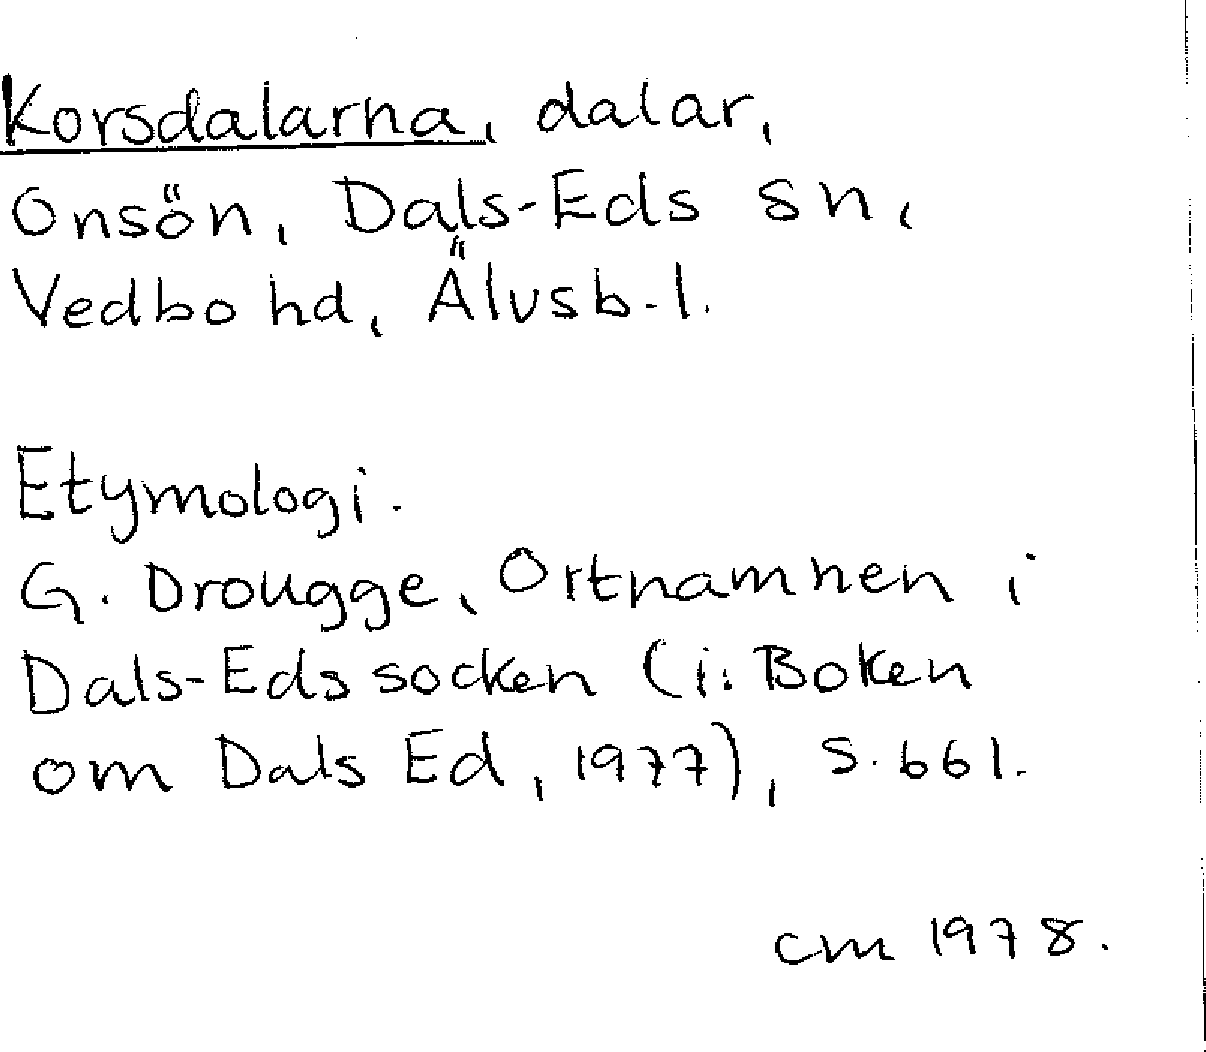 Korsdalarna, dalar,
Onsön, Dals-Eds sn,
Vedbo hd, Älvsb. l.
Etymologi.
G. Drougge, Ortnamnen i
Dals-Eds socken (i: Boken
om Dals Ed, 1977), s. 661.
cm 1978.